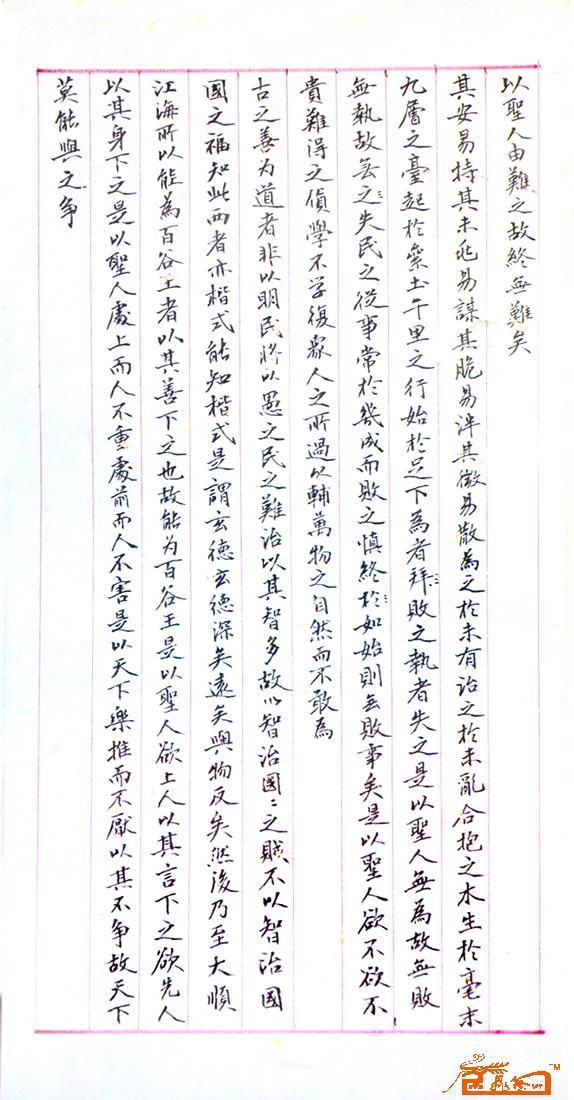 以聖人由難之故終無難矣
其安易持其未兆易謀其脆易泮其微易散為之於未有治之於未亂合抱之木生於毫末
九層之臺起於累土千里之行始於足下為者拜敗之執者失之是以聖人無為故無敗
無執故无之失民之從事常於幾成而敗之慎終於如始則无敗事矣是以聖人欲不欲不
貴難得之貨學不学復眾人之所過以輔萬物之自然而不敢為
古之善为道者非以明民將以愚之民之難治以其智多故以智治國〻之賊不以智治國
國之福知此兩者亦楷式能知楷式是謂玄德玄德深矣遠矣與物反矣然後乃至大順
江海所以能為百谷王者以其善下之也故能为百谷王是以聖人欲上人以其言下之欲先人
以其身下之是以聖人處上而人不重處前而人不害是以天下樂推而不厭以其不争故天下
莫能與之争